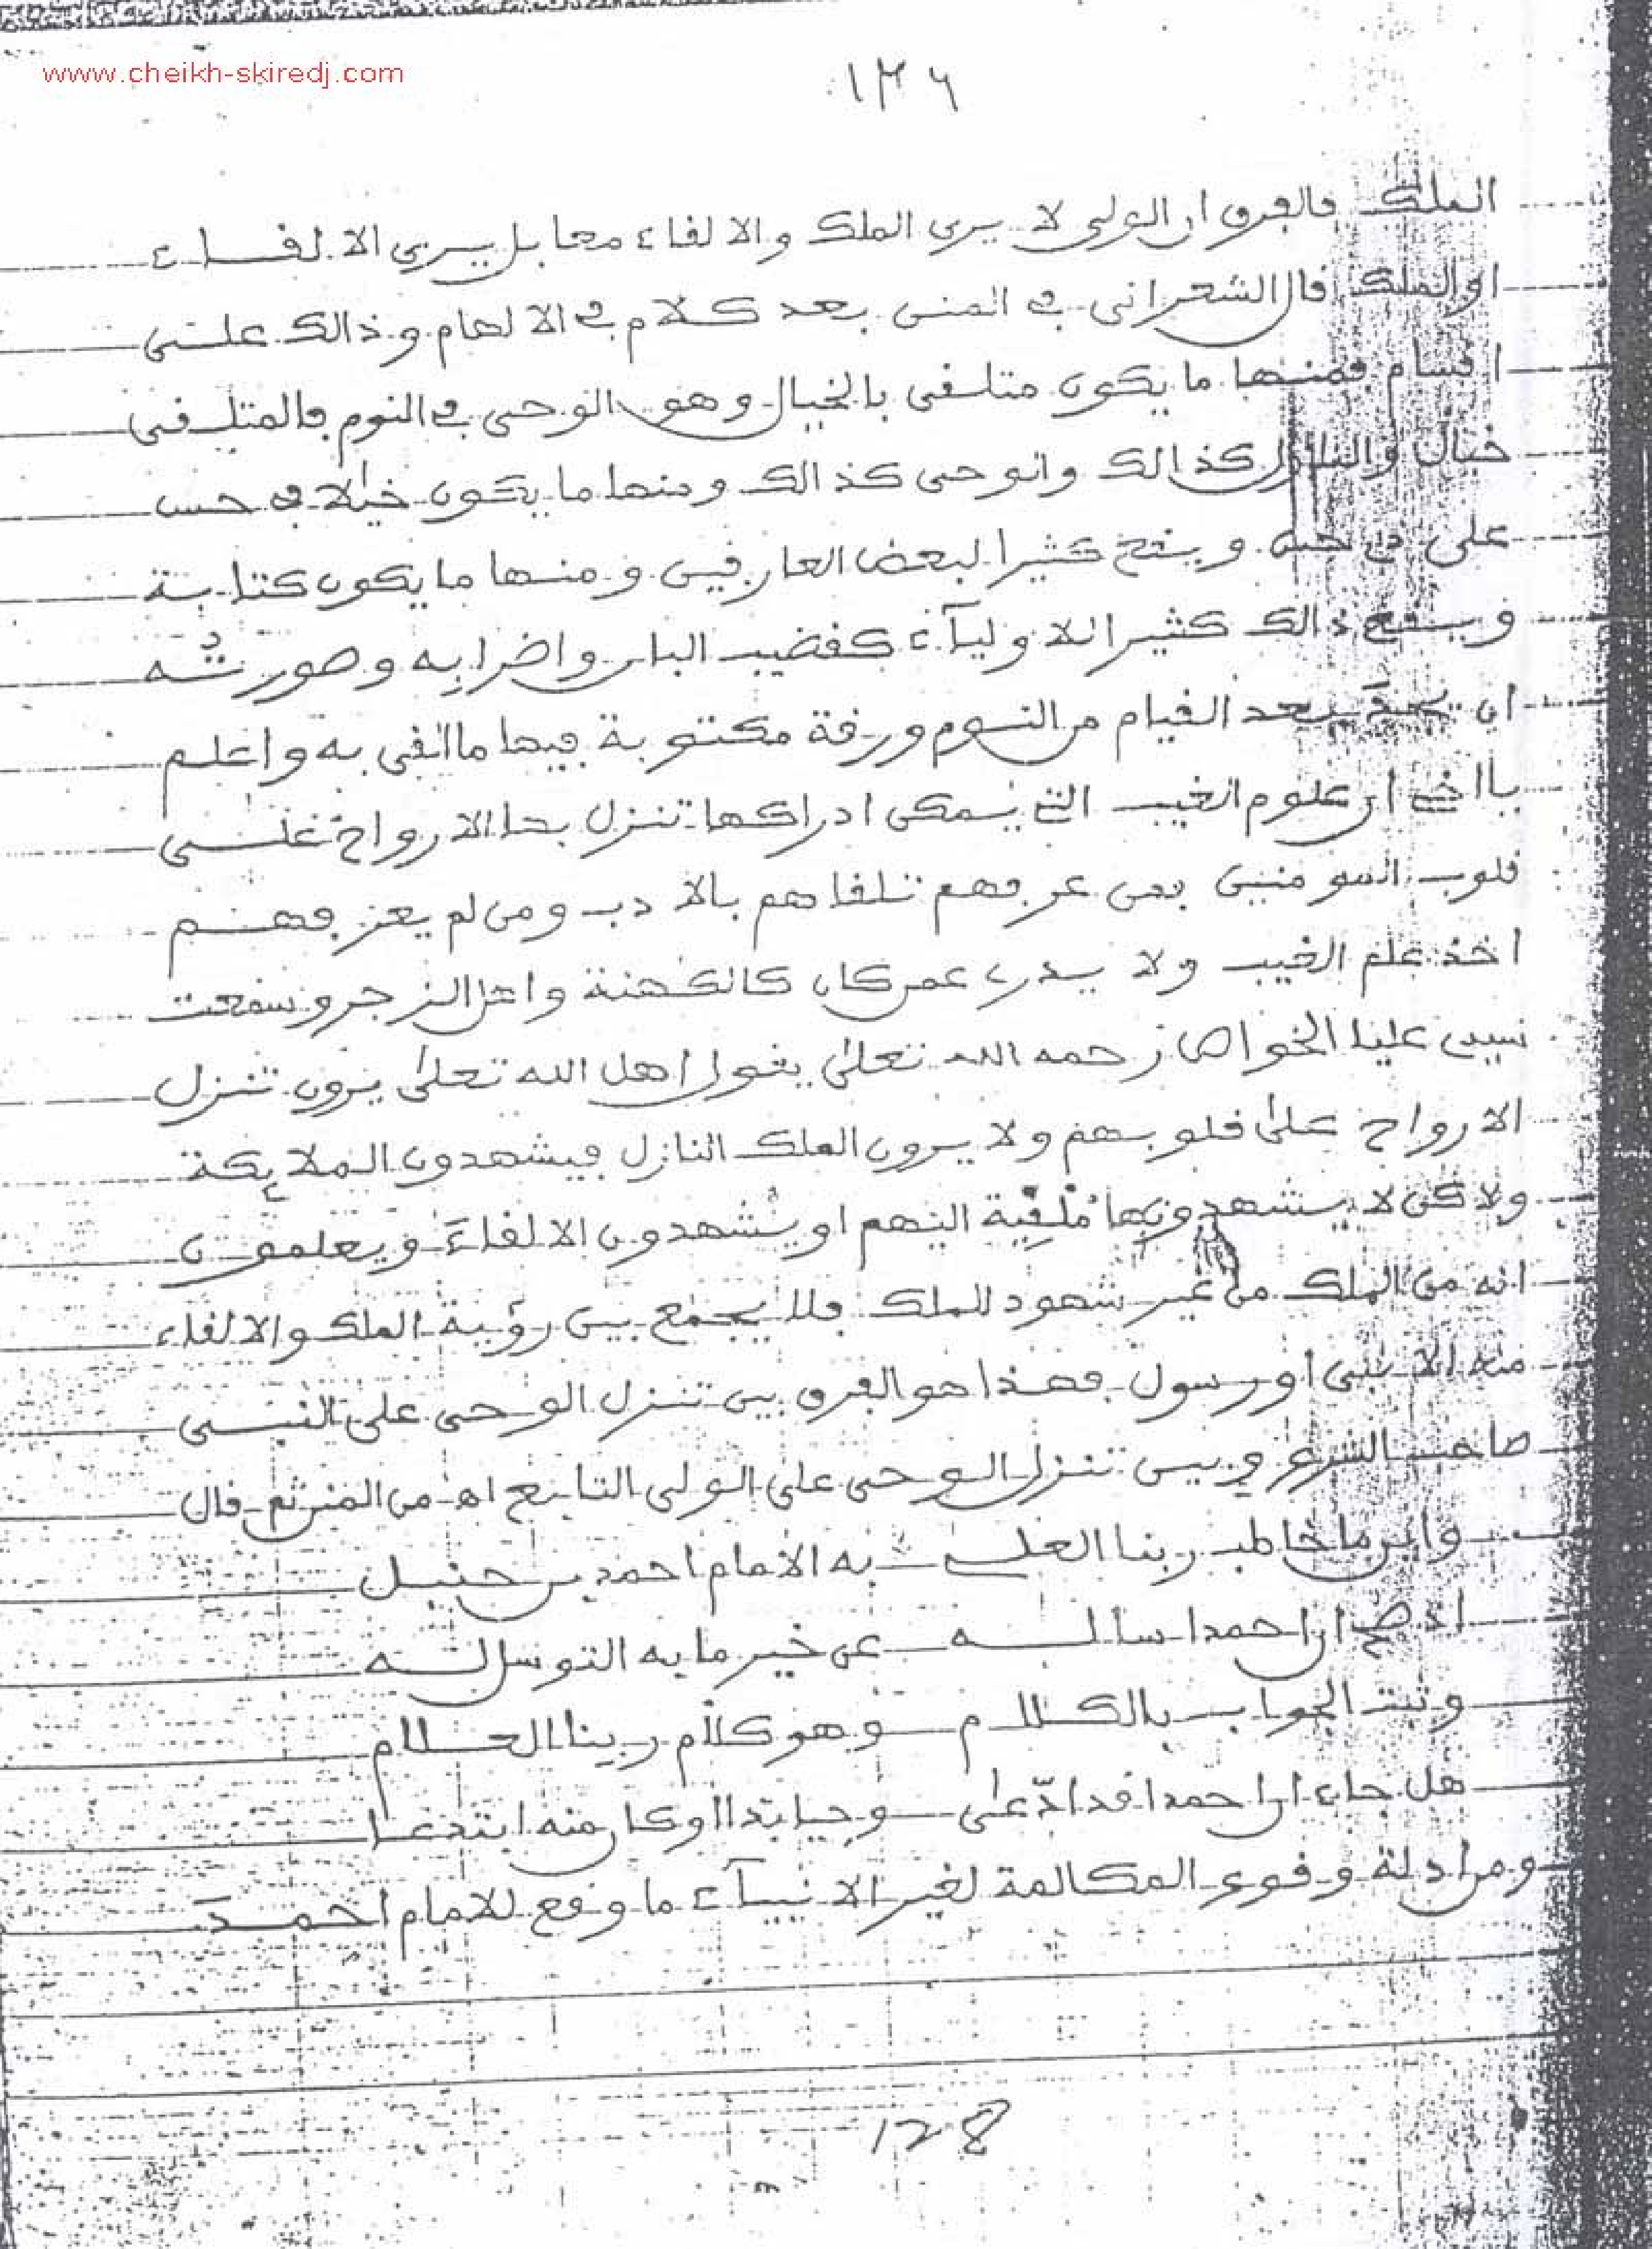 www.cheikh-skiredj.com
١٣٦
الملك فالفرق ان الولي لا يرى الملك والالقاء معا بل يرى الالقاء
او الملك قال الشعراني في المنن بعد كلام في الالهام وذالك على
اقسام فمنها ما يكون متلقى بالخيال وهو الوحي في النوم فالمتلقى
خيال والنازل كذالك والوحي كذالك ومنها ما يكون خيالا في حس
على ذي حس ويقع كثيرا لبعض العارفين ومنها ما يكون كتابة
ويقع ذالك كثيرا للاوليآء كقضيب البان واضرابه وصورتُه
ان يجدَ بعد القيام من النوم ورقة مكتوبة فيها ما القي به واعلم
يا اخي ان علوم الغيب التي يمكن ادراكها تنزل بها الارواح على
قلوب المومنين فمن عرفهم تلقاهم بالادب ومن لم يعرفهم
اخذ علم الغيب ولا يدرى عمن كان كالكهنة واهل الزجر وسمعت
سيدى عليا الخواص رحمه الله تعلى يقول اهل الله تعلى يرون تنزل
الارواح على قلوبهم ولا يرون الملك النازل فيشهدون الملايكة
ولاكن لا يشهدونها مُلْقِيَة اليهم او يشهدون الالقاءَ ويعلمون
انه من الملك من غير شهود للملك فلا يجمع بين رؤية الملك والالقاء
منه الا نبي او رسول فهذا هو الفرق بين تنزل الوحي على النبي
صاحب الشرع وبين تنزل الوحي على الولي التابع اه من المنن ثم قال
واين ما خاطب ربنا العلي به الامام احمد بن حنبل
اذ صح ان احمدا ساله عن خير ما به التوسل له
وثبت الجواب بالكلام وهو كلام ربنا العلام
هل جاء ان احمدا قد ادّعى وحيا بذا او كان منه ابتدعا
ومن ادلة وقوع المكالمة لغير الانبيآء ما وقع للامام احمدَ
128